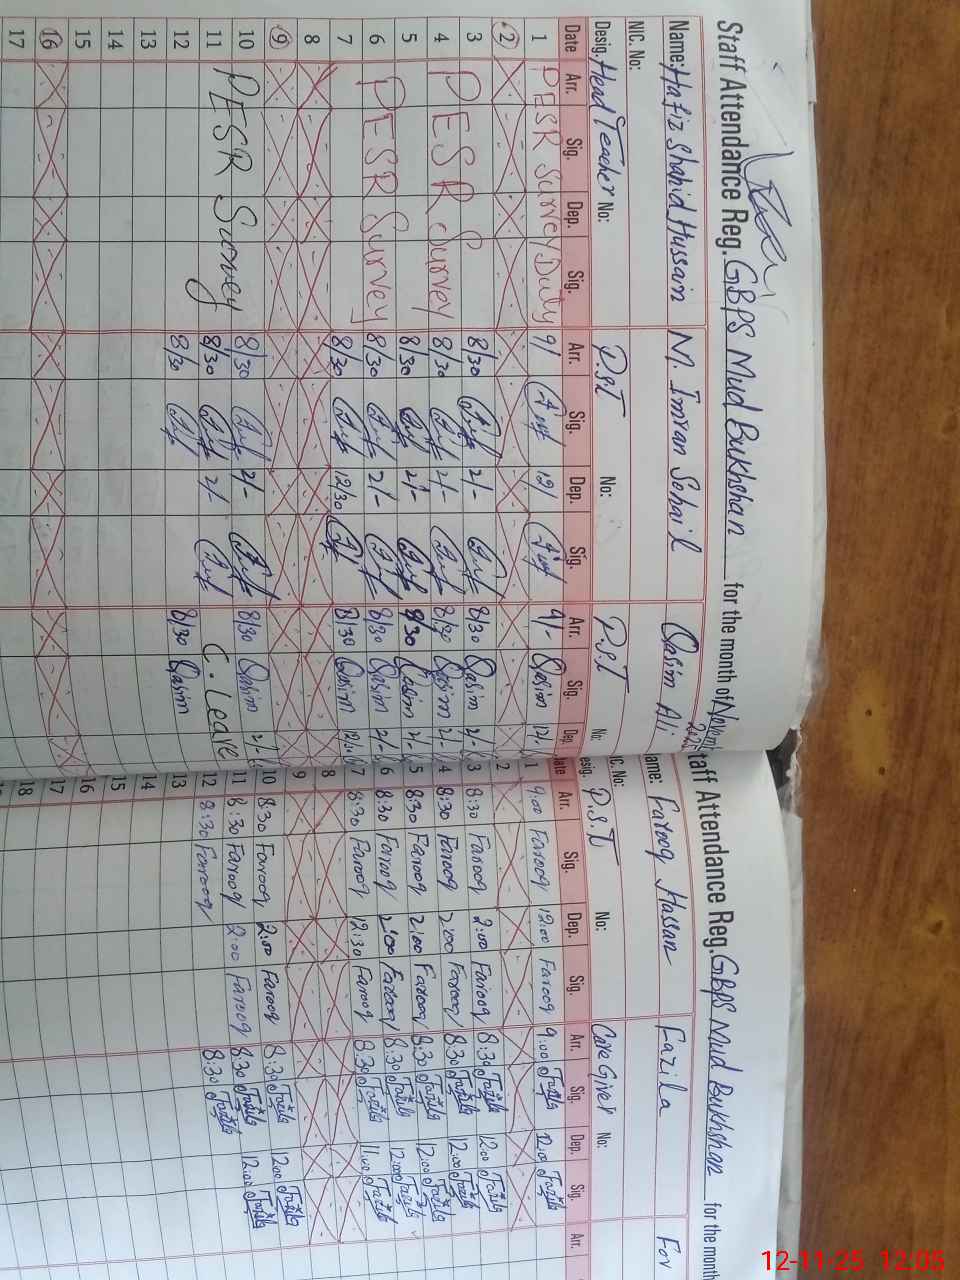 Staff Attendance Reg. GBPS Mud Bukhshan for the month of Novem
2025
Name: Hafiz Shahid Hussain M. Imran Sohail Qasim Ali
NIC. No:
Desig. Head Teacher No: P.S.T No: P.S.T No:
Date Arr. Sig. Dep. Sig. Arr. Sig. Dep. Sig. Arr. Sig. Dep.
1 PESR Survey Duty 9/ 12/ 9/- Qasim 12/-
2
3 8/30 2/- 8/30 Qasim 2/-
4 PESR Survey 8/30 2/- 8/30 Qasim 2/-
5 8/30 2/- 8/30 Qasim 2/-
6 PESR Survey 8/30 2/- 8/30 Qasim 2/-
7 8/30 12/30 8/30 Qasim 12/30
8
9
10 8/30 2/- 8/30 Qasim 2/-
11 PESR Survey 8/30 2/- C. Leave
12 8/30 8/30 Qasim
13
14
15
16
17
taff Attendance Reg. GBPS Mud Bukhshan for the month
ame: Farooq Hassan Fazila For
IC. No:
esig. P.S.T No: Care Giver No:
ate Arr. Sig. Dep. Sig. Arr. Sig. Dep. Sig. Arr.
1 9:00 Farooq 12:00 Farooq 9:00 Fazila 12:00 Fazila
2
3 8:30 Farooq 2:00 Farooq 8:30 Fazila 12:00 Fazila
4 8:30 Farooq 2:00 Farooq 8:30 Fazila 12:00 Fazila
5 8:30 Farooq 2:00 Farooq 8:30 Fazila 12:00 Fazila
6 8:30 Farooq 2:00 Farooq 8:30 Fazila 12:00 Fazila
7 8:30 Farooq 12:30 Farooq 8:30 Fazila 11:00 Fazila
8
9
10 8:30 Farooq 2:00 Farooq 8:30 Fazila 12:00 Fazila
11 8:30 Farooq 2:00 Farooq 8:30 Fazila 12:00 Fazila
12 8:30 Farooq 8:30 Fazila
13
14
15
16
17
18
12-11-25 12:05